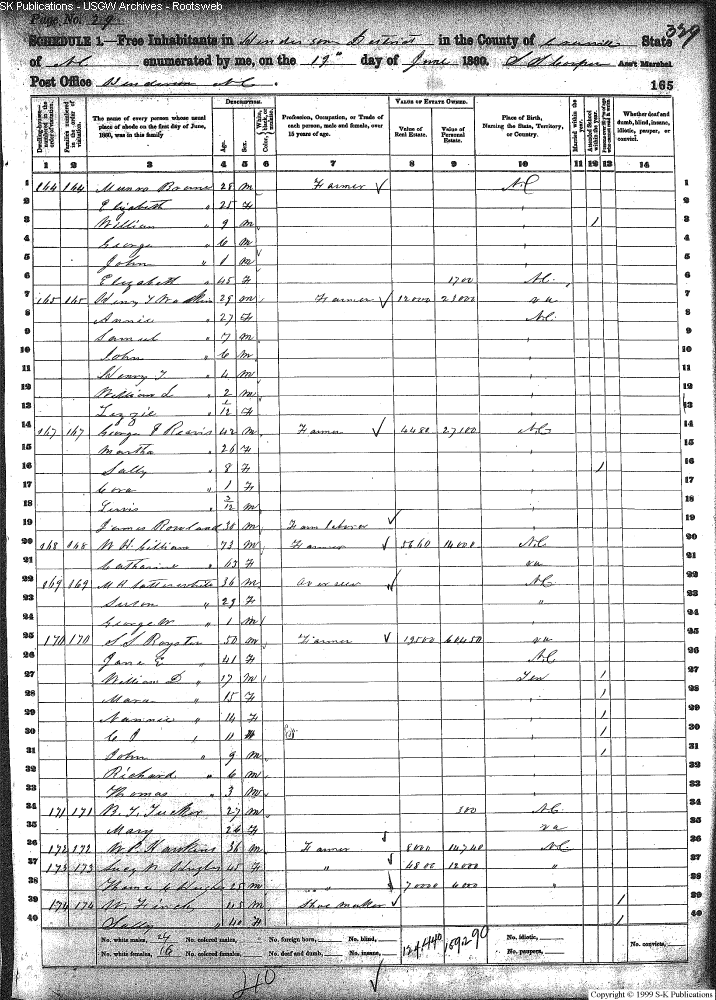 SK Publications - USGW Archives - Rootsweb
Page No. 29
329
SCHEDULE 1.—Free Inhabitants in Henderson District in the County of State
of NC enumerated by me, on the 19" day of June 1860. Ass't Marshal
Post Office Henderson NC. 165
Dwelling-houses—numbered in the order of visitation.
Families numbered in the order of visitation.
The name of every person whose usual place of abode on the first day of June, 1860, was in this family
DESCRIPTION.
Age.
Sex.
Color
Profession, Occupation, or Trade of each person, male and female, over 15 years of age.
VALUE OF ESTATE OWNED.
Value of Real Estate.
Value of Personal Estate.
Place of Birth, Naming the State, Territory, or Country.
Married within the year.
Attended School within the year.
Whether deaf and dumb, blind, insane, idiotic, pauper, or convict.
1 2 3 4 5 6 7 8 9 10 11 12 13 14
1 164 164 Munro 28 m Farmer NC 1
2 Elizabeth " 25 F 2
3 William " 9 m 1 3
4 George " 6 m 4
5 John " 1 m 5
6 Elizabeth " 45 F 1700 NC 6
7 165 165 Henry 29 m Farmer 12000 23000 va 7
8 Annie " 27 F NC 8
9 Samuel " 7 m 9
10 John " 6 m 10
11 Henry T " 4 m 11
12 William L " 2 m 12
13 Lizzie " /12 F 13
14 167 167 George Reavis 42 m Farmer 4480 27100 NC 14
15 Martha " 26 F 15
16 Sally " 8 F 1 16
17 Cora " 1 F 17
18 Lewis " 3/12 m 18
19 James Rowland 38 m Farm laborer 19
20 168 168 W H 73 m Farmer 5660 14000 NC 20
21 Catharine " 63 F va 21
22 169 169 M H Satterwhite 36 m Overseer NC 22
23 " 29 F " 23
24 George W " 1 m 24
25 170 170 S S Royster 50 m Farmer 19500 60450 va 25
26 Jane E " 41 F NC 26
27 William D " 17 m Ten 1 27
28 " 15 F 1 28
29 Nannie " 14 F 1 29
30 C J " 11 1 30
31 John " 9 m 1 31
32 Richard " 6 m 32
33 Thomas " 3 m 33
34 171 171 B. T. Tucker 27 m 300 NC 34
35 Mary 26 F va 35
36 172 172 Hawkins 36 m Farmer 8000 14740 NC 36
37 173 173 Lucy Hughes 45 F " 4800 12000 " 37
38 Thomas Hughes 25 m " " 70000 4000 " 38
39 174 174 W. Finch 45 m Shoe maker / 39
40 Sally " 40 F / 40
No. white males, 24 No. colored males, No. foreign born, No. blind, 124440 169290 No. idiotic, No. convicts,
No. white females, 16 No. colored females, No. deaf and dumb, No. insane, No. paupers,
40
Copyright © 1999 S-K Publications